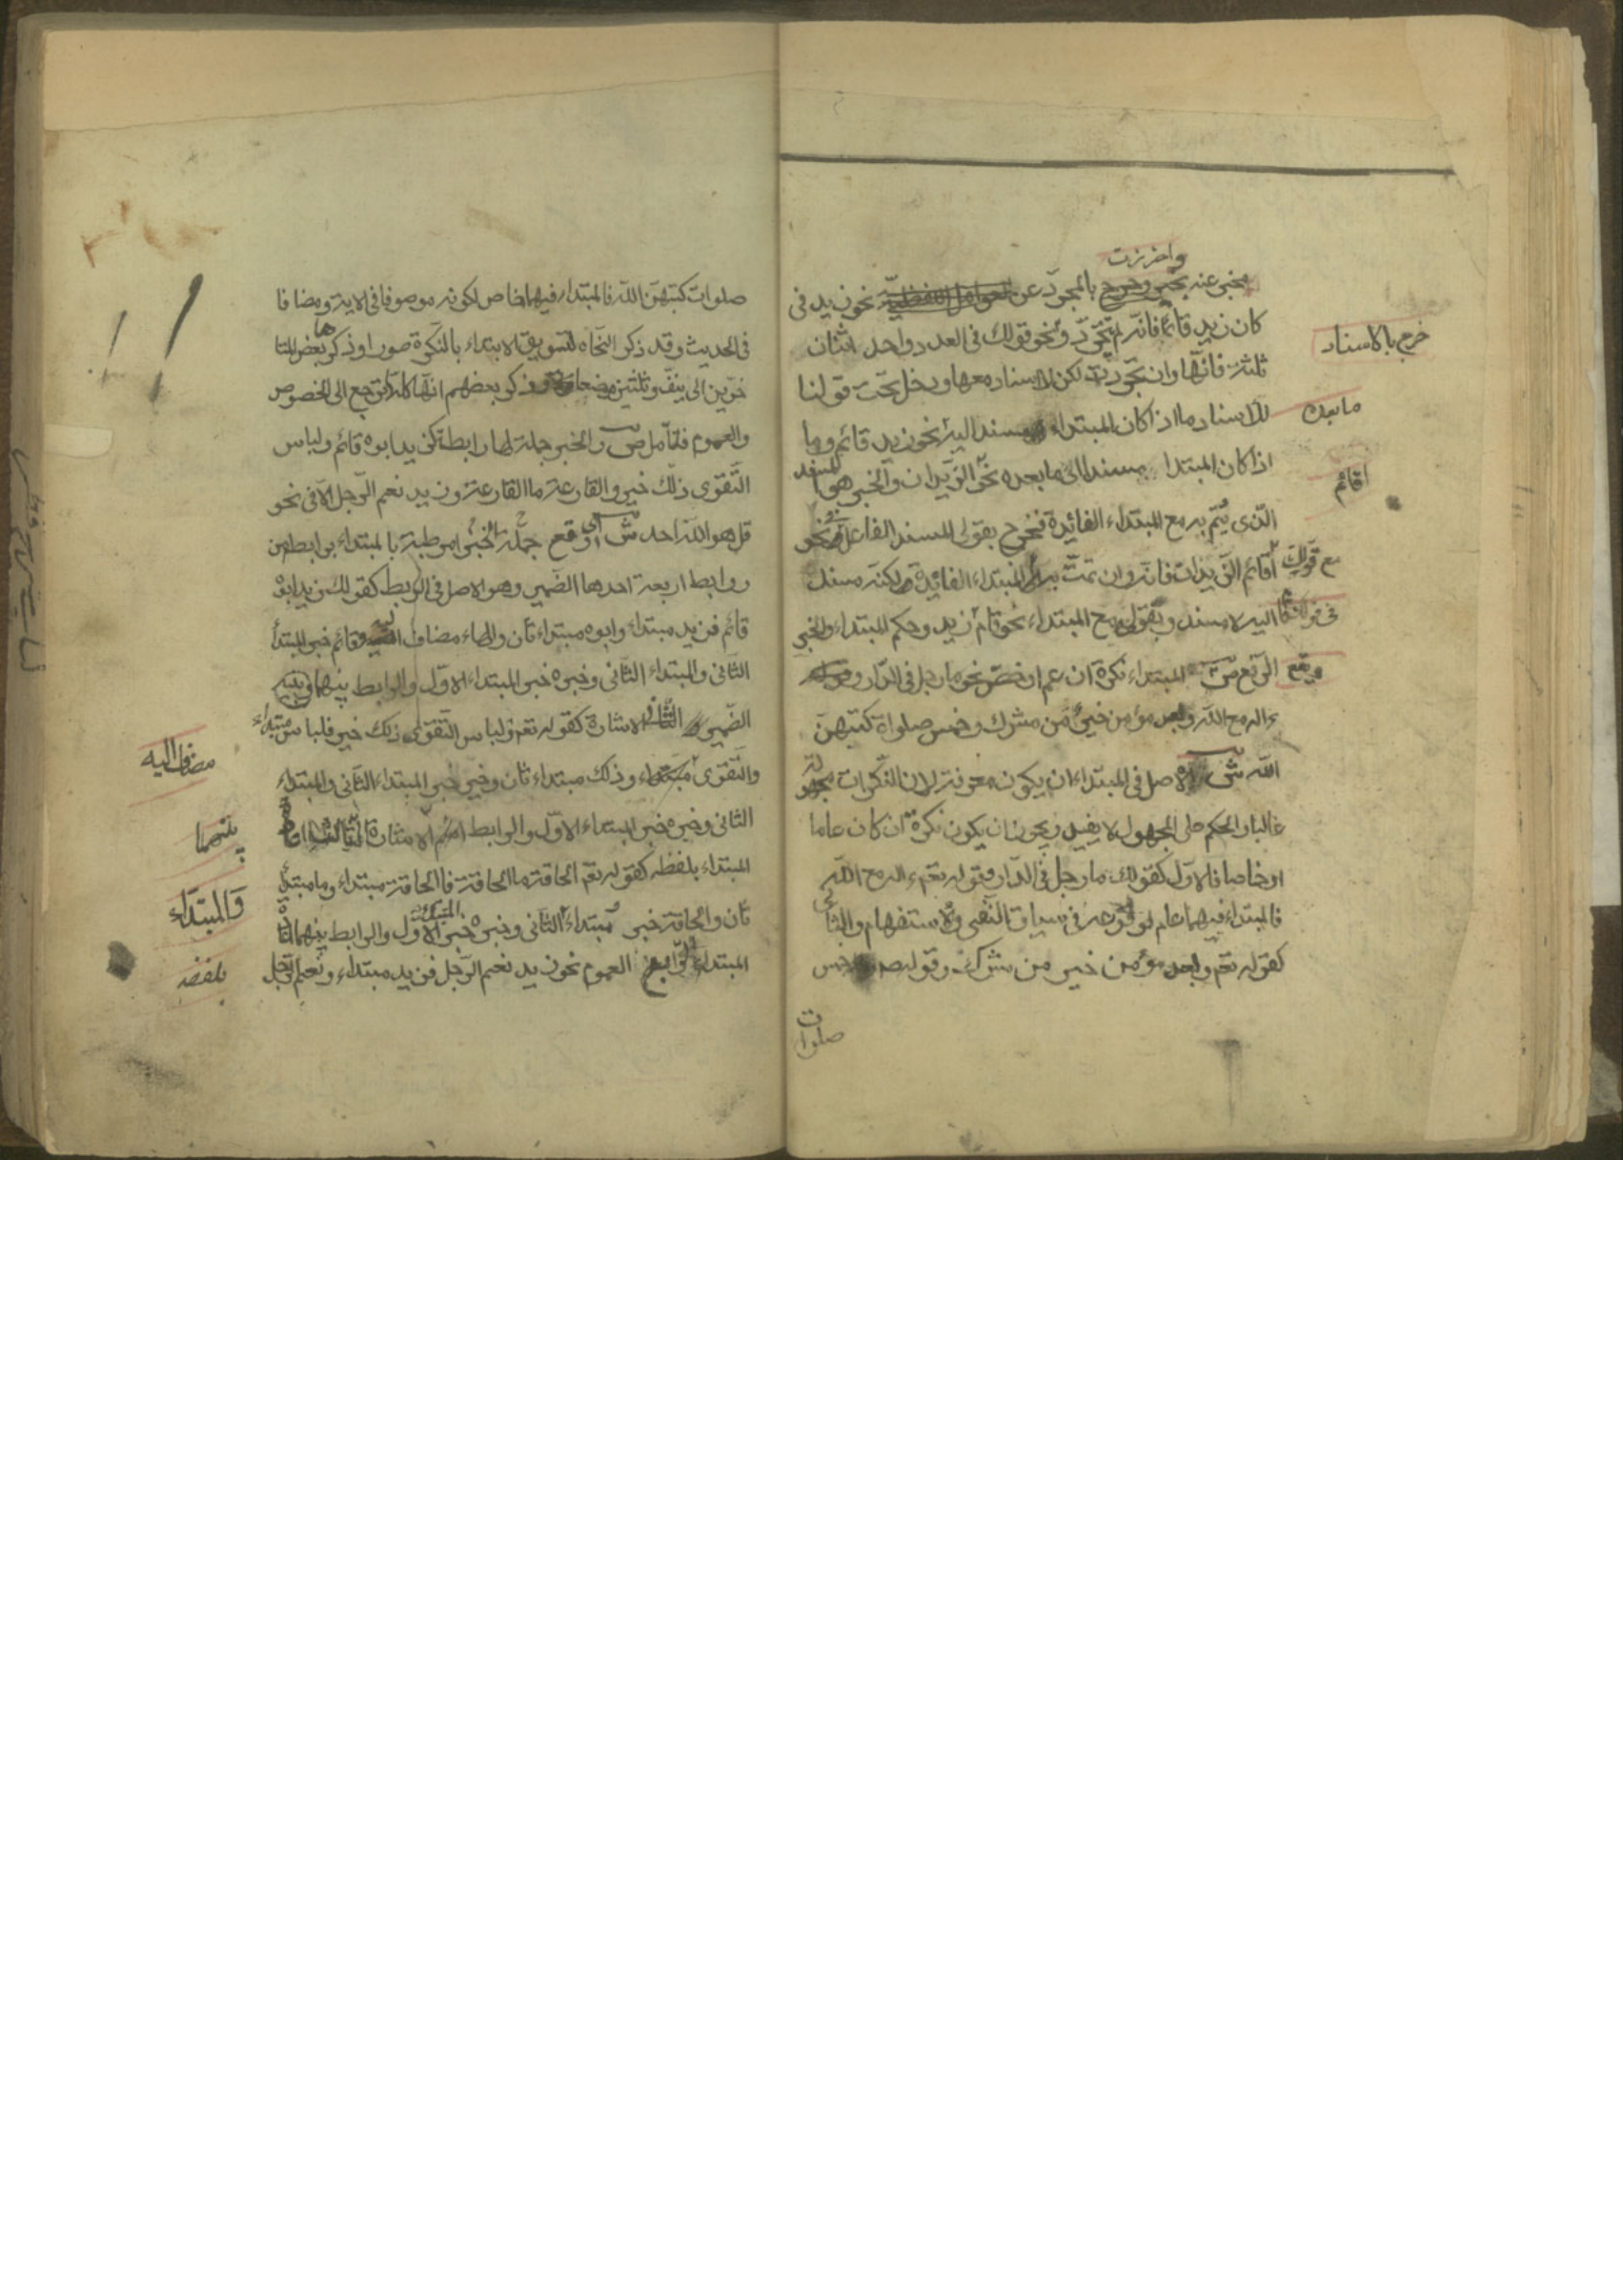 واحترزت
مخبر عنه بخبر وخرج بالمجرد عن العوامل اللفظية نحو زيد في
كان زيد قائما فانه لم يتجرد ونحو قولك في العدد واحد اثنان
خرج بالاسناد
ثلثة فانها وان تجردت لكن لا اسناد معها ودخل تحت قولنا
للاسناد ما اذا كان المبتداء مسندا اليه نحو زيد قائم وما
ما بعده
اذا كان المبتدا مسندا الى ما بعده نحو الزيدان والخبر هو المسند
اقائم
الذي يتم به مع المبتداء الفائدة فخرج بقولي المسند الفاعل في نحو
اقائم الزيدان فانه وان تمت به مع المبتداء الفائدة لكنه مسند
مع قولك
اليه لا مسند وبقولي مع المبتداء نحو قام زيد وحكم المبتداء والخبر
الرفع ص ويقع المبتداء نكرة ان عم او خص نحو ما رجل في الدار
ءاله مع الله ولعبد مؤمن خير من مشرك وخمس صلوات كتبهن
الله ش الاصل في المبتداء ان يكون معرفة لان النكرات مجهولة
غالبا والحكم على المجهول لا يفيد ويجوز ان يكون نكرة ان كان عاما
او خاصا فالاول كقولك ما رجل في الدار وقوله تعم ءاله مع الله
فالمبتداء فيهما عام لوقوعه في سياق النفي والاستفهام والثاني
كقوله تعم ولعبد مؤمن خير من مشرك وقوله ص خمس
صلوات
صلوات كتبهن الله فالمبتداء فيهما خاص لكونه موصوفا في الاية ومضافا
في الحديث وقد ذكر النحاه لتسويق الابتداء بالنكرة صورا وذكرها بعض المتا
خرين الى نيف وثلثين موضعا وذكر بعضهم انها كلها ترجع الى الخصوص
والعموم فتأمل ص والخبر جملة لها رابطة كزيد ابوه قائم ولباس
التقوى ذلك خير والقارعة ما القارعة وزيد نعم الرجل الا في نحو
قل هو الله احد ش اي وقع جملة الخبر مرتبطة بالمبتداء برابط من
روابط اربعة احدها الضمير وهو الاصل في الربط كقولك زيد ابوه
قائم فزيد مبتداء وابوه مبتداء ثان والهاء مضاف اليه وقائم خبر المبتدأ
الثاني والمبتداء الثاني وخبره خبر المبتداء الاول والرابط بينهما
الضمير الثاني الاشارة كقوله تعم ولباس التقوى ذلك خير فلباس مبتداء
والتقوى وذلك مبتداء ثان وخير خبر المبتداء الثاني والمبتداء
مضاف اليه
الثاني وخبره خبر المبتداء الاول والرابط اسم الاشارة الثالث اعادة
بينهما
المبتداء بلفظه كقوله تعم الحاقة ما الحاقة فالحاقة مبتداء وما مبتدأ
ثان والحاقة خبر المبتداء الثاني وخبره خبر المبتداء الاول والرابط بينهما اعادة
والمبتداء
المبتداء الرابع العموم نحو زيد نعم الرجل فزيد مبتداء ونعم الرجل
بلفظه